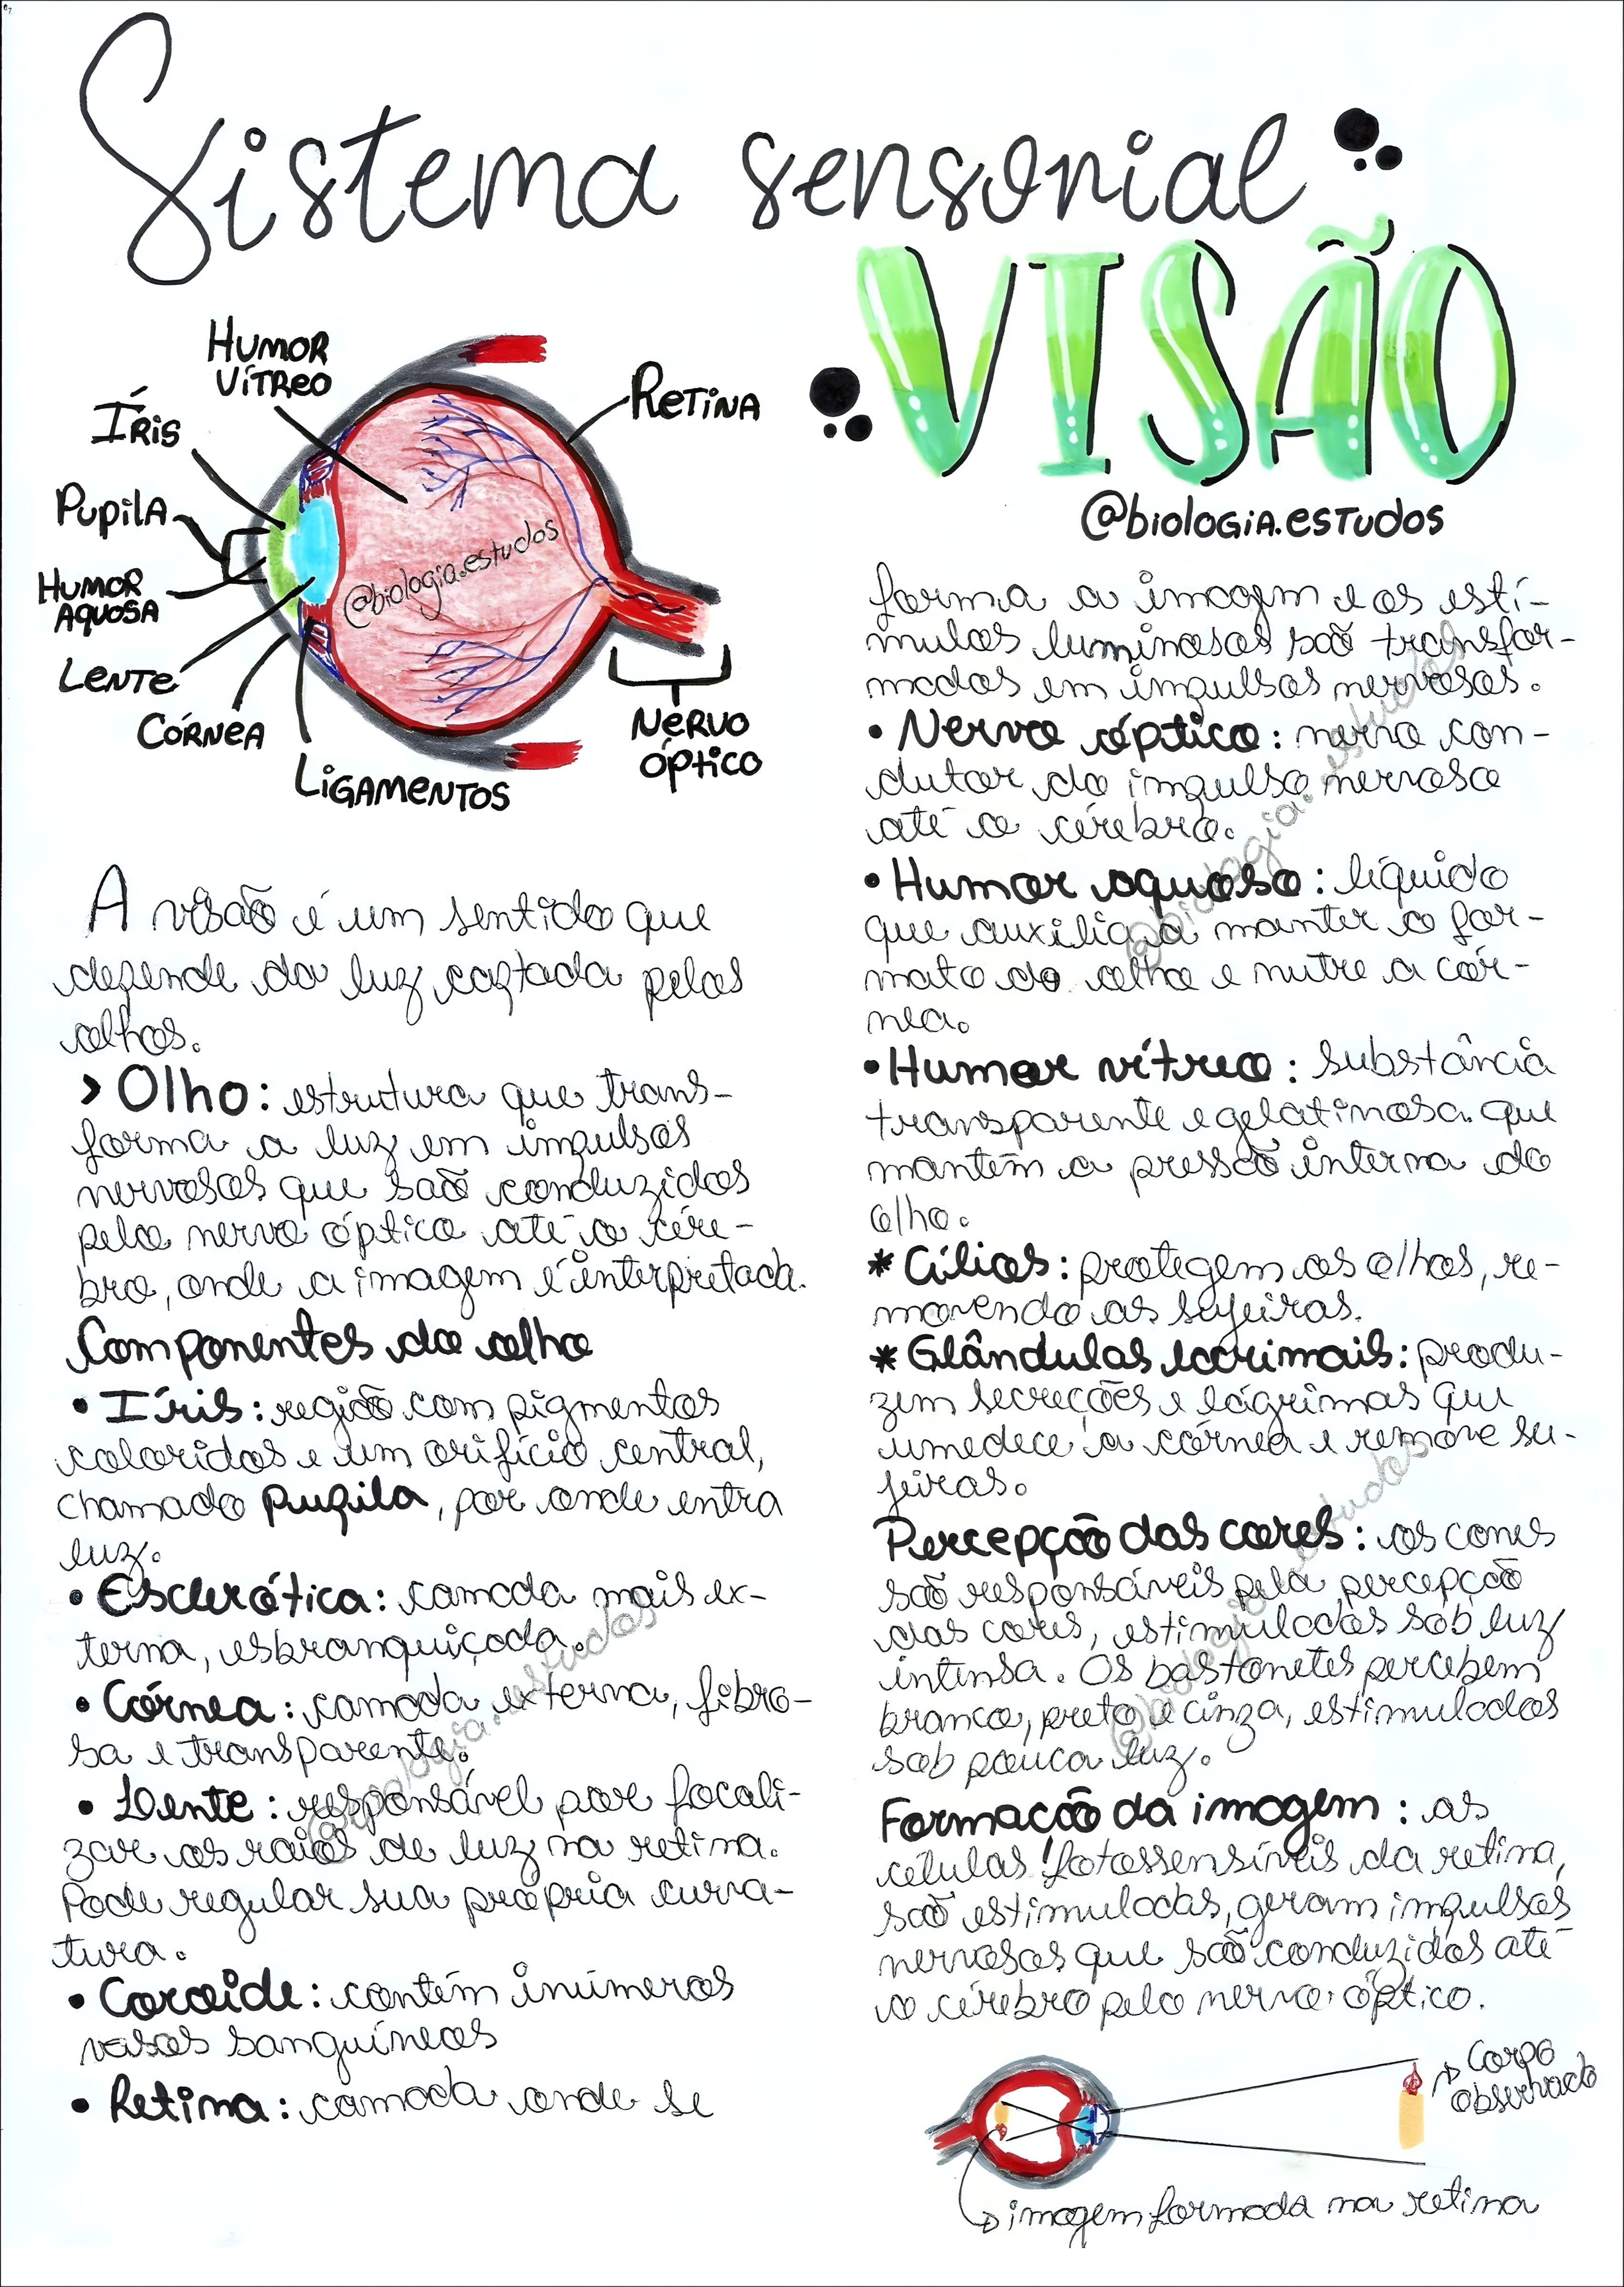 Sistema sensorial
VISÃO
@biologia.estudos
HUMOR
VÍTREO
ÍRIS
PUPILA
HUMOR
AQUOSA
LENTE
CÓRNEA
LIGAMENTOS
RETINA
NERVO
ÓPTICO
@biologia.estudos
A visão é um sentido que
depende da luz captada pelos
olhos.
> Olho: estrutura que trans-
forma a luz em impulsos
nervosos que são conduzidos
pelo nervo óptico até o cére-
bro, onde a imagem é interpretada.
Componentes do olho
• Íris: região com pigmentos
coloridos e um orifício central,
chamado pupila, por onde entra
luz.
• Esclerótica: camada mais ex-
terna, esbranquiçada.
• Córnea: camada externa, fibro-
sa e transparente.
• Lente: responsável por focali-
zar os raios de luz na retina.
Pode regular sua própria curva-
tura.
• Coroide: contém inúmeros
vasos sanguíneos
• Retina: camada onde se
@biologia.estudos
forma a imagem e os estí-
mulos luminosos são transfor-
mados em impulsos nervosos.
• Nervo óptico: nervo con-
dutor do impulso nervoso
até o cérebro.
• Humor aquoso: líquido
que auxilia a manter o for-
mato do olho e nutre a cór-
nea.
• Humor vítreo: substância
transparente e gelatinosa que
mantém a pressão interna do
olho.
* Cílios: protegem os olhos, re-
movendo as sujeiras.
* Glândulas lacrimais: produ-
zem secreções e lágrimas que
umedece a córnea e remove su-
jeiras.
Percepção das cores: os cones
são responsáveis pela percepção
das cores, estimulados sob luz
intensa. Os bastonetes percebem
branco, preto e cinza, estimulados
sob pouca luz.
Formação da imagem: as
células fotossensíveis da retina,
são estimuladas, geram impulsos
nervosos que são conduzidos até
o cérebro pelo nervo óptico.
@biologia.estudos
@biologia.estudos
Corpo
observado
imagem formada na retina